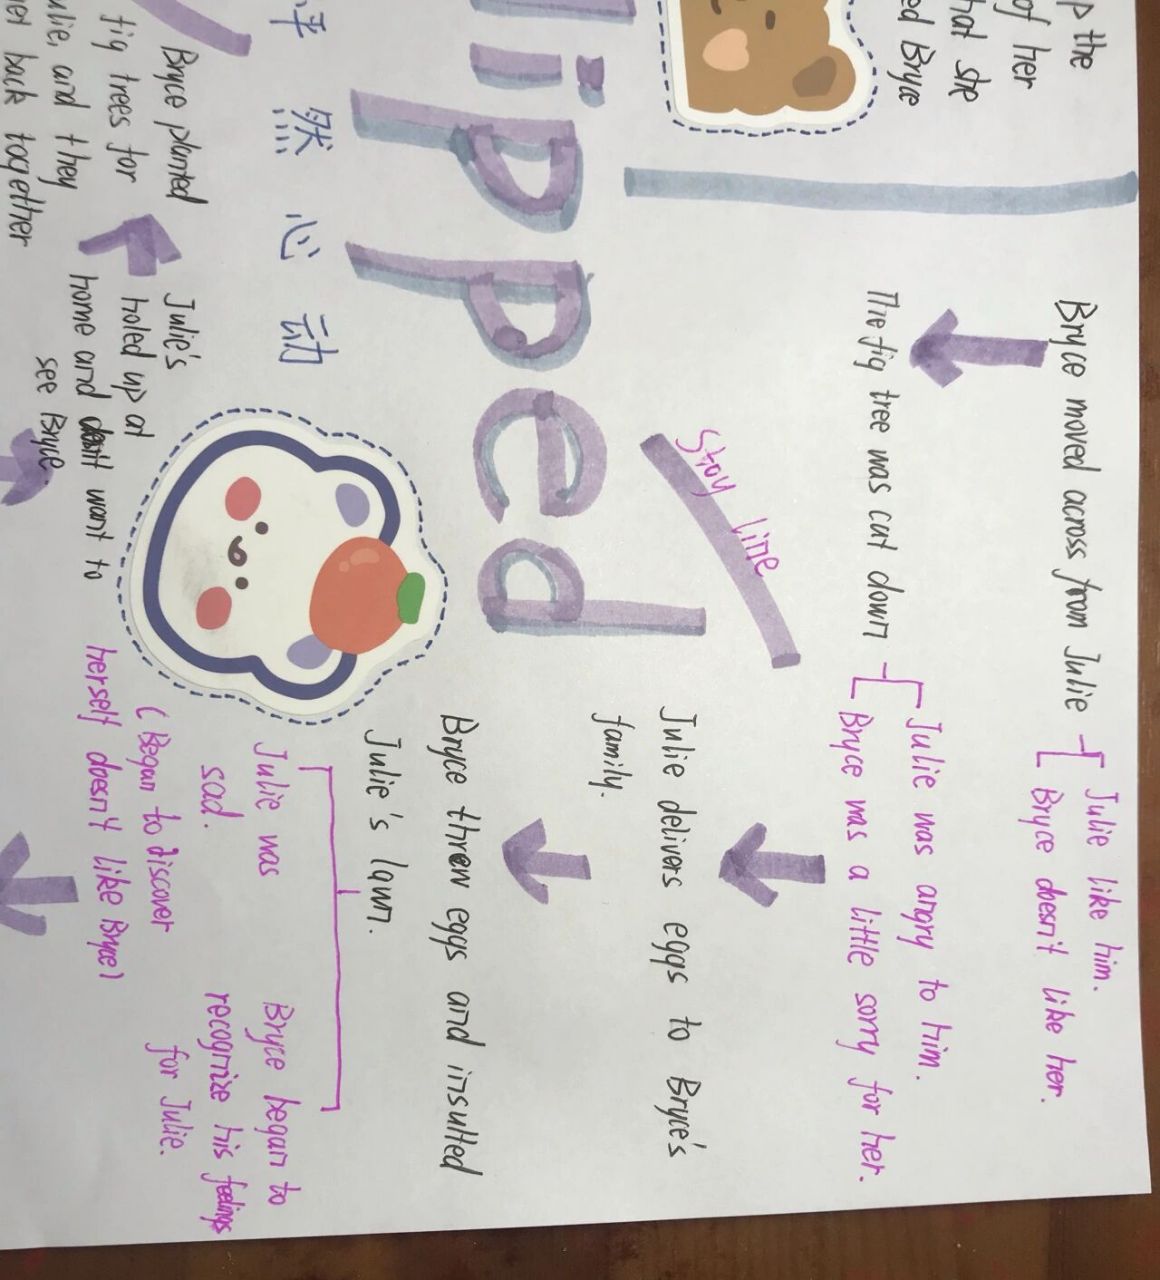 p the
of her
hat she
ed Bryce
Bryce moved across from Julie
Julie like him.
Bryce doesn't like her.
The fig tree was cut down
Julie was angry to him.
Bryce was a little sorry for her.
Stoy line
Julie delivers eggs to Bryce's
family.
Bryce threw eggs and insulted
Julie's lawn.
Julie was
sad.
(Began to discover
herself doesn't like Bryce)
Bryce began to
recognize his feelings
for Julie.
lipped
然心动
Julie's
holed up at
home and don't want to
see Bryce.
Bryce planted
fig trees for
ulie, and they
back together